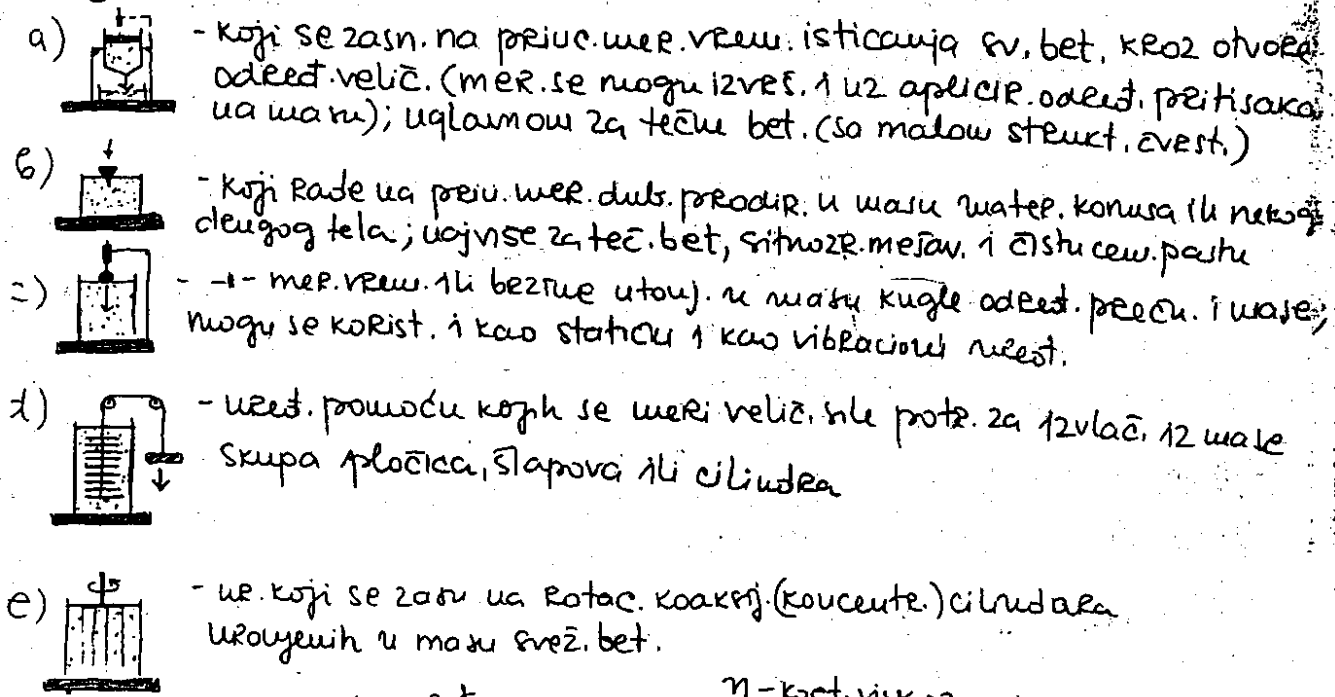 a) - koji se zasn. na princ. mer. vrem. isticanja sv. bet. kroz otvore
određ. velič. (mer. se mogu izves. i uz aplicir. odeđ. pritisaka
na masu); uglavnom za tečne bet. (sa malom strukt. čvrst.)
b) - koji rade na prin. mer. dub. prodir. u masu mater. konusa ili nekog
drugog tela; najviše za teč. bet, sitnozr. mešav. i čistu cem. pastu
c) - -"- mer. vrem. ili brzine utonj. u masu kugle odeđ. prečn. i mase;
mogu se korist. i kao statički i kao vibracioni
d) - uređ. pomoću kojih se meri velič. sile potr. za izvlač. iz mase
skupa pločica, štapova ili cilindra
e) - ur. koji se zasn na rotac. koaksij. (koncentr.) cilindara
uronjenih u masu svež. bet.